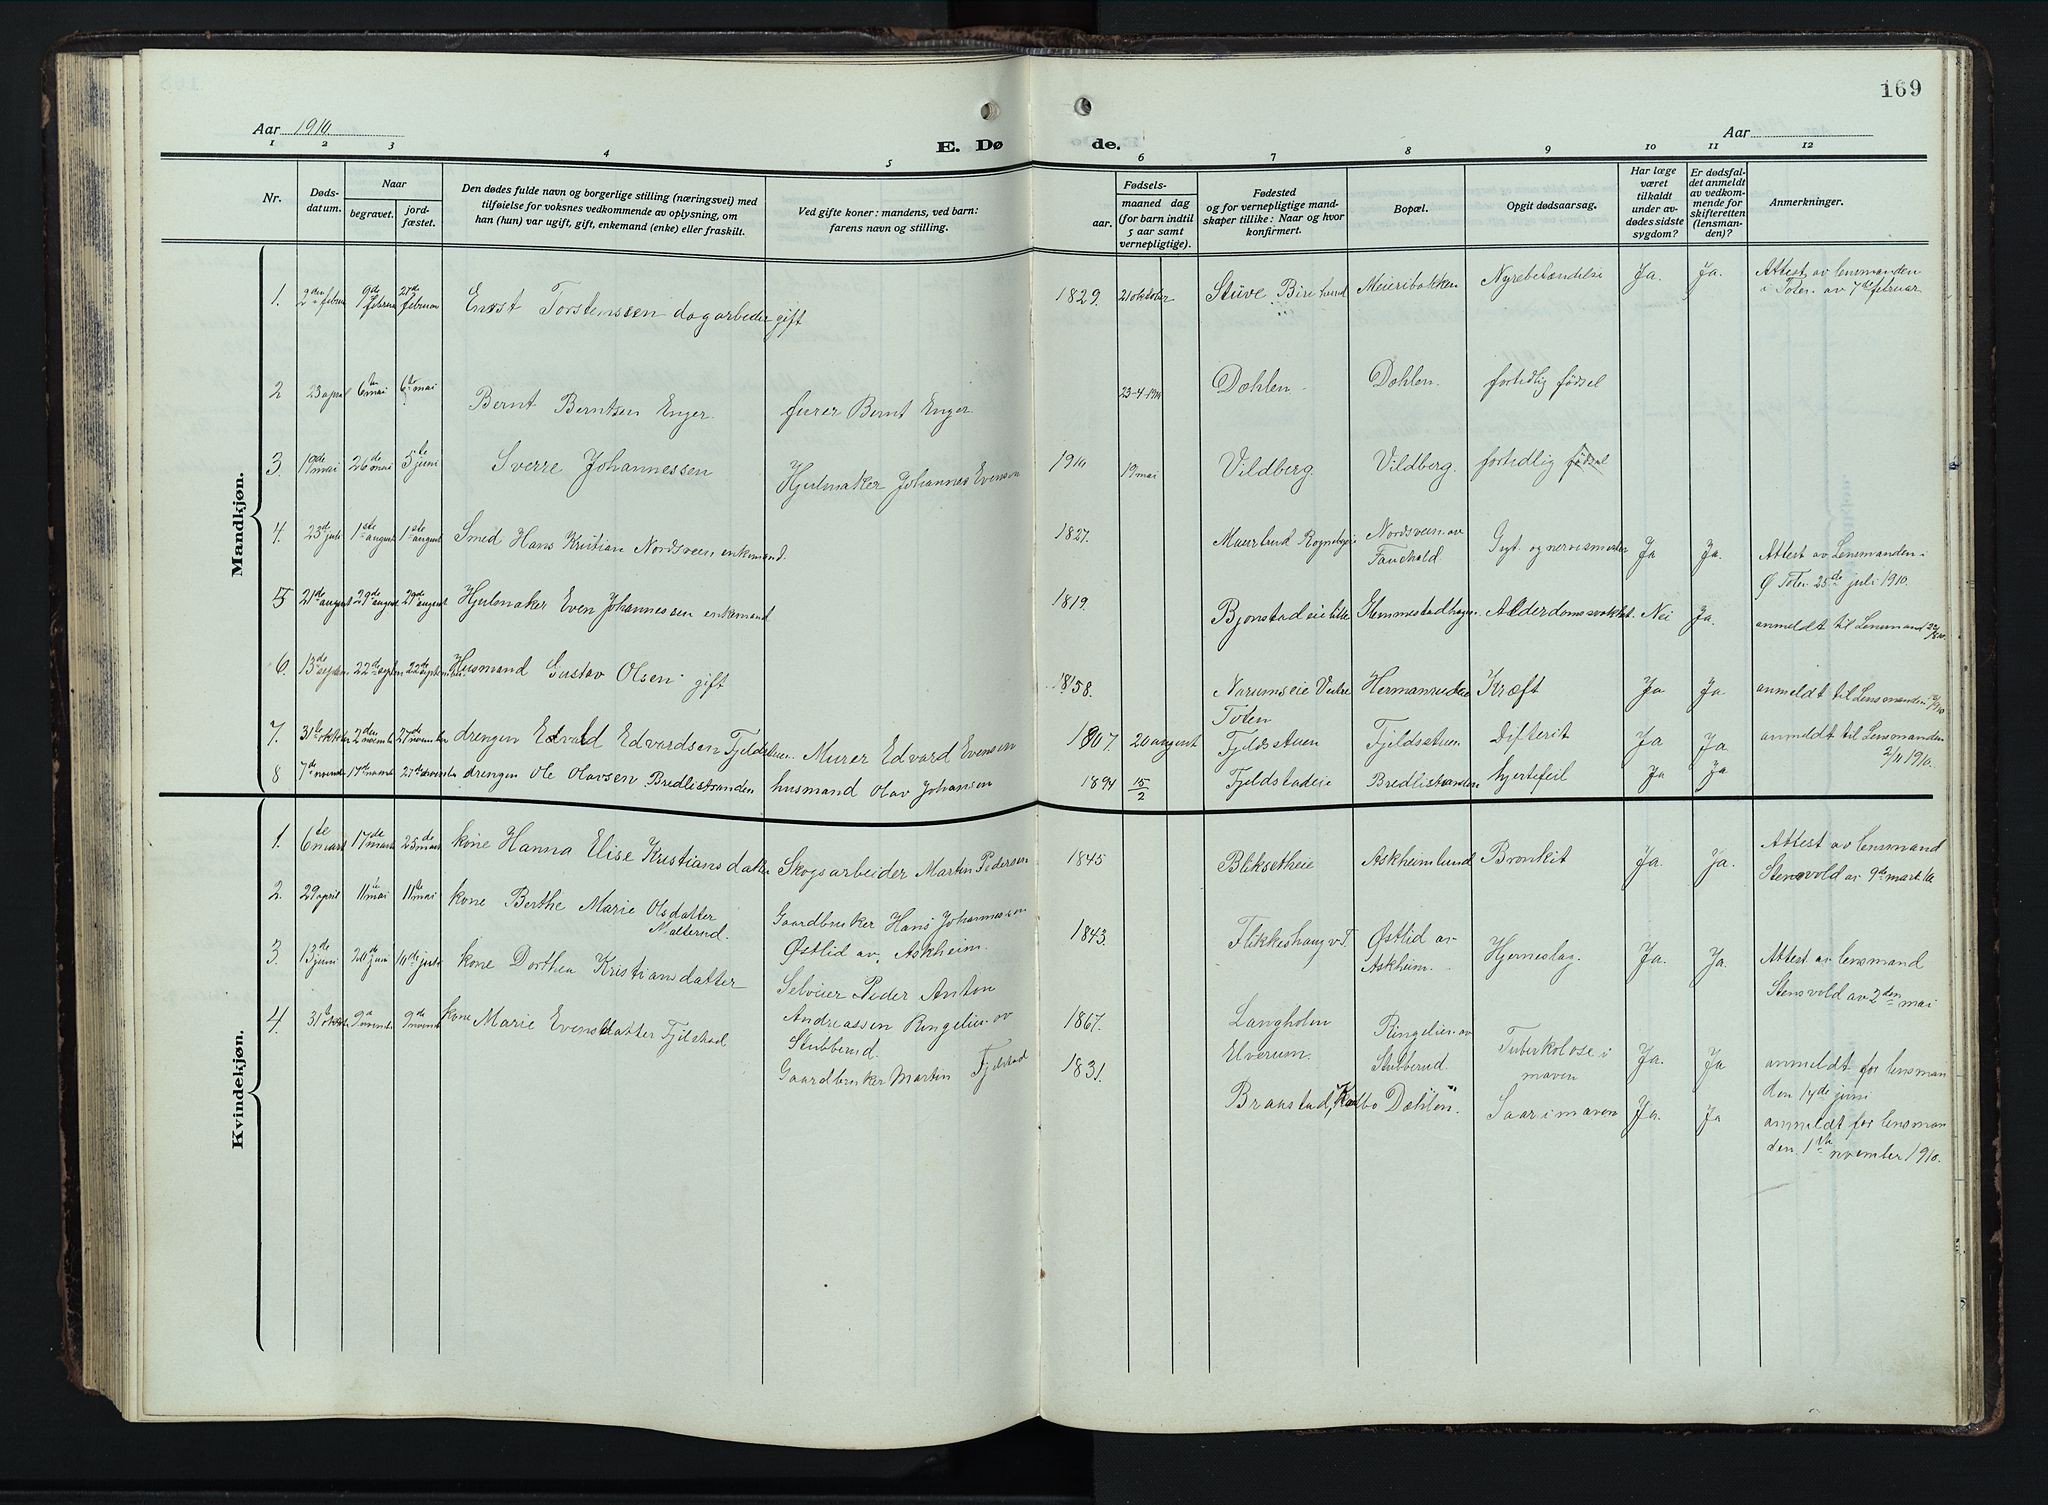 169
Aar 1910
E. Døde.
Aar
1 2 3 4 5 6 7 8 9 10 11 12
Nr.
Døds-
datum.
Naar
begravet.
jord-
fæstet.
Den dødes fulde navn og borgerlige stilling (næringsvei) med
tilføielse for voksnes vedkommende av oplysning, om
han (hun) var ugift, gift, enkemand (enke) eller fraskilt.
Ved gifte koner: mandens, ved barn:
farens navn og stilling.
Fødsels-
aar.
maaned dag
(for barn indtil
5 aar samt
vernepligtige).
Fødested
og for vernepligtige mand-
skaper tillike: Naar og hvor
konfirmert.
Bopæl.
Opgit dødsaarsag.
Har læge
været
tilkaldt
under av-
dødes sidste
sygdom?
Er dødsfal-
det anmeldt
av vedkom-
mende for
skifteretten
(lensman-
den)?
Anmerkninger.
Mandkjøn.
1. 2den februar 9de februar 27de februar Enost Torstenssen dagarbeider gift 1829. 21 oktober Stüve Biri Meieribakken Nyrebetændelse Ja. Ja. Attest av lensmanden
i Toten av 7de februar
2 23 april 6te mai 6te mai Bernt Berntsen Enger. furer Bernt Enger 23-4-1910 Dæhlen. Dæhlen. fortidlig födsel
3 19de mai 26de mai 5te juni Sverre Johannessen Hjulmaker Johannes Evensen 1910 19 mai Vildberg. Vildberg. fortidlig födsel
4. 23de juli 1ste august 1ste august Smed Hans Kristian Nordsveen enkemand. 1827. Nordsveen av
Fauchald Ja Ja. Attest av Lensmanden i
Ø Toten 25de juli 1910.
5 21de august 29de august 29de august Hjulmaker Even Johannessen enkemand 1819. Hemmestadhagen Alderdomssvakhet Nei Ja. anmeldt til Lensmand 22/8 10
6. 13de septem 22de septem 22de september Husmand Gustav Olsen gift 1858. Narumseie Vestre
Toten Kræft Ja Ja anmeldt til Lensmanden
7. 31te oktober 2den november 27de november drengen Edvald Edvardsen Fjeldstuen. Murer Edvard Evensen 1907. 20 august Fjeldsstuen Fjeldsstuen Difterit Ja Ja anmeldt til Lensmanden
2/11 1910.
8 7de november 17de november 27de november drengen Ole Olavsen Bredlistranden husmand Olav Johansen 1894 15/2 Fjeldstadeie Bredlistranden hjertefeil Ja Ja
Kvindekjøn.
1. 6te mart 17de mart 25de mart kone Hanna Elise Kristiansdatter Skogsarbeider Martin Pedersen 1845 Bliksetheie Askheimlund Bronkit Ja. Ja. Attest av lensmand
Stensvold av 9de mart. 10
2. 29 april 11te mai 11te mai kone Berthe Marie Olsdatter
Malterud. Gaardbruker Hans Johannessen
Østlid av Askheim. 1843. Flikkeshaug v.T. Østlid av
Askheim. Hjerneslag. Ja. Ja. Attest av lensmand
Stensvold av 2den mai
3. 13de juni 20de juni 10de juli kone Dorthea Kristiansdatter Selveier Peder Anton
Andreassen Ringelien av
Stubberud. 1867. Langholen
Elverum. Ringelien av
Stubberud. Tuberkolose i
maven Ja. Ja anmeldt for lensman
den 14de juni
4. 31te oktober 9de november 9de november kone Marie Evensdatter Fjelstad Gaardbruker Martin Fjelstad 1831. Branstad, Kolbo Dæhlen. Saar i maven Ja. Ja anmeldt for lensman
den. 1ste november 1910.